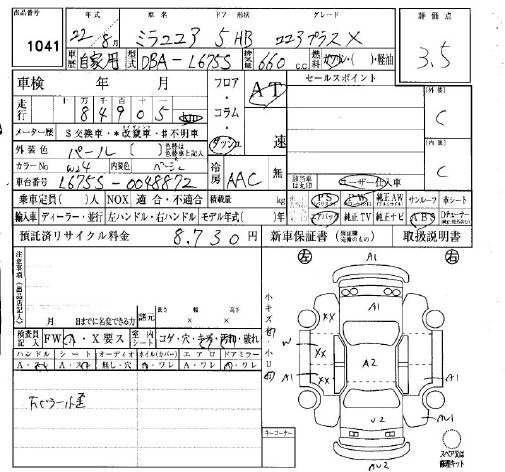 出品番号 1041
年式 22/8月
車名 ミラココア
ドア 形状 5HB
グレード ココアプラスX
評価点 3.5
車歴 自家用
型式 DBA-L675S
排気量 660 C.C
燃料 ガソリン・・軽油
車検 年 月
フロア・コラム・ダッシュ
AT
速
セールスポイント
(外装) C
(内装) C
走行 十万千百十一
84905
メーター歴 $交換車・*改竄車・#不明車
外装色 パール( )
色替は色替車と記入
カラーNo W24
内装色 ベージュ
冷房 AAC
無
該当車は丸印
ユーザー仕入車
車台番号 L675S-0048872
乗車定員( )人 NOX 適合・不適合
積載量 kg
PS PW 純正AW サンルーフ 革シート
輸入車 ディーラー・並行 左ハンドル・右ハンドル モデル年式( )年
エアバッグ 純正TV 純正ナビ ABS
預託済リサイクル料金 8,730円
新車保証書
取扱説明書
注意事項(出品店記入)
月 日までに名変できる方
諸元 長さ 幅 高さ
× ×
検査員記入 FW A・X要ス
室内シート コゲ・穴・キズ・汚れ・破れ
ハンドル シート オーディオ ホイル(カバー) エアロ ドアミラー
無し・穴
小キズ
小凹
左 右
A1
A1
XX
W
XX
A2
A1
XX
A1
U2
AU1
AU2
キーコーナー
スペア又は修理キット